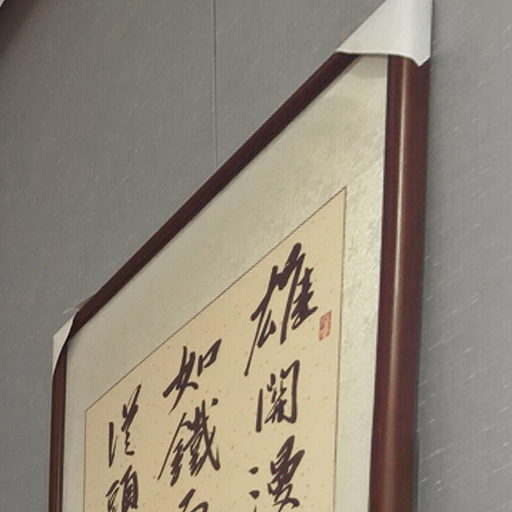 雄關漫
如鐵而
從頭